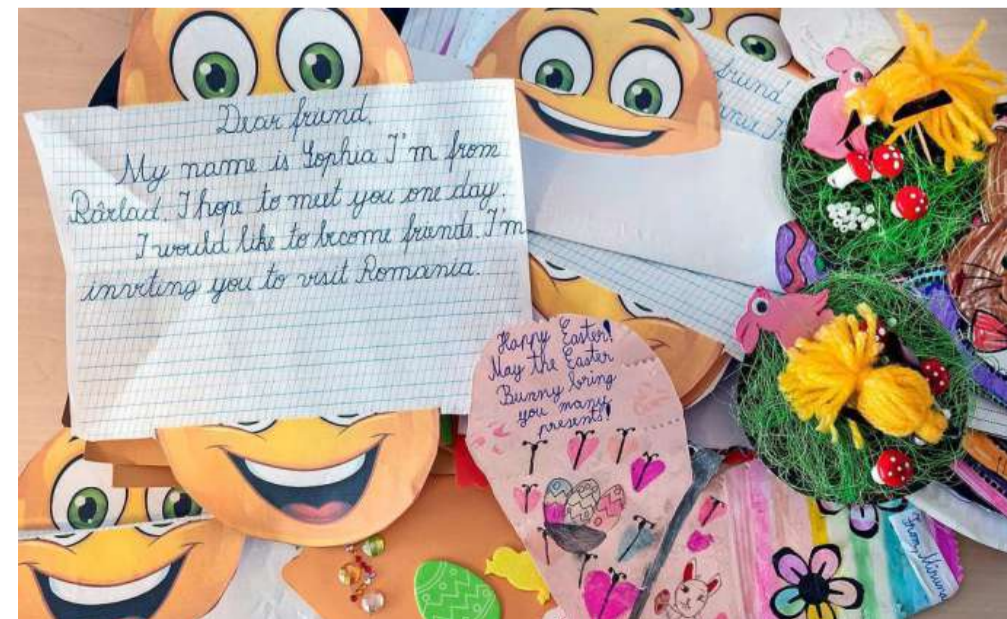 Dear friend,
My name is Sophia I'm from
Bârlad. I hope to meet you one day.
I would like to become friends. I'm
inviting you to visit Romania.
friend
Happy Easter!
May the Easter
Bunny bring
you many
presents!
From, Miruna